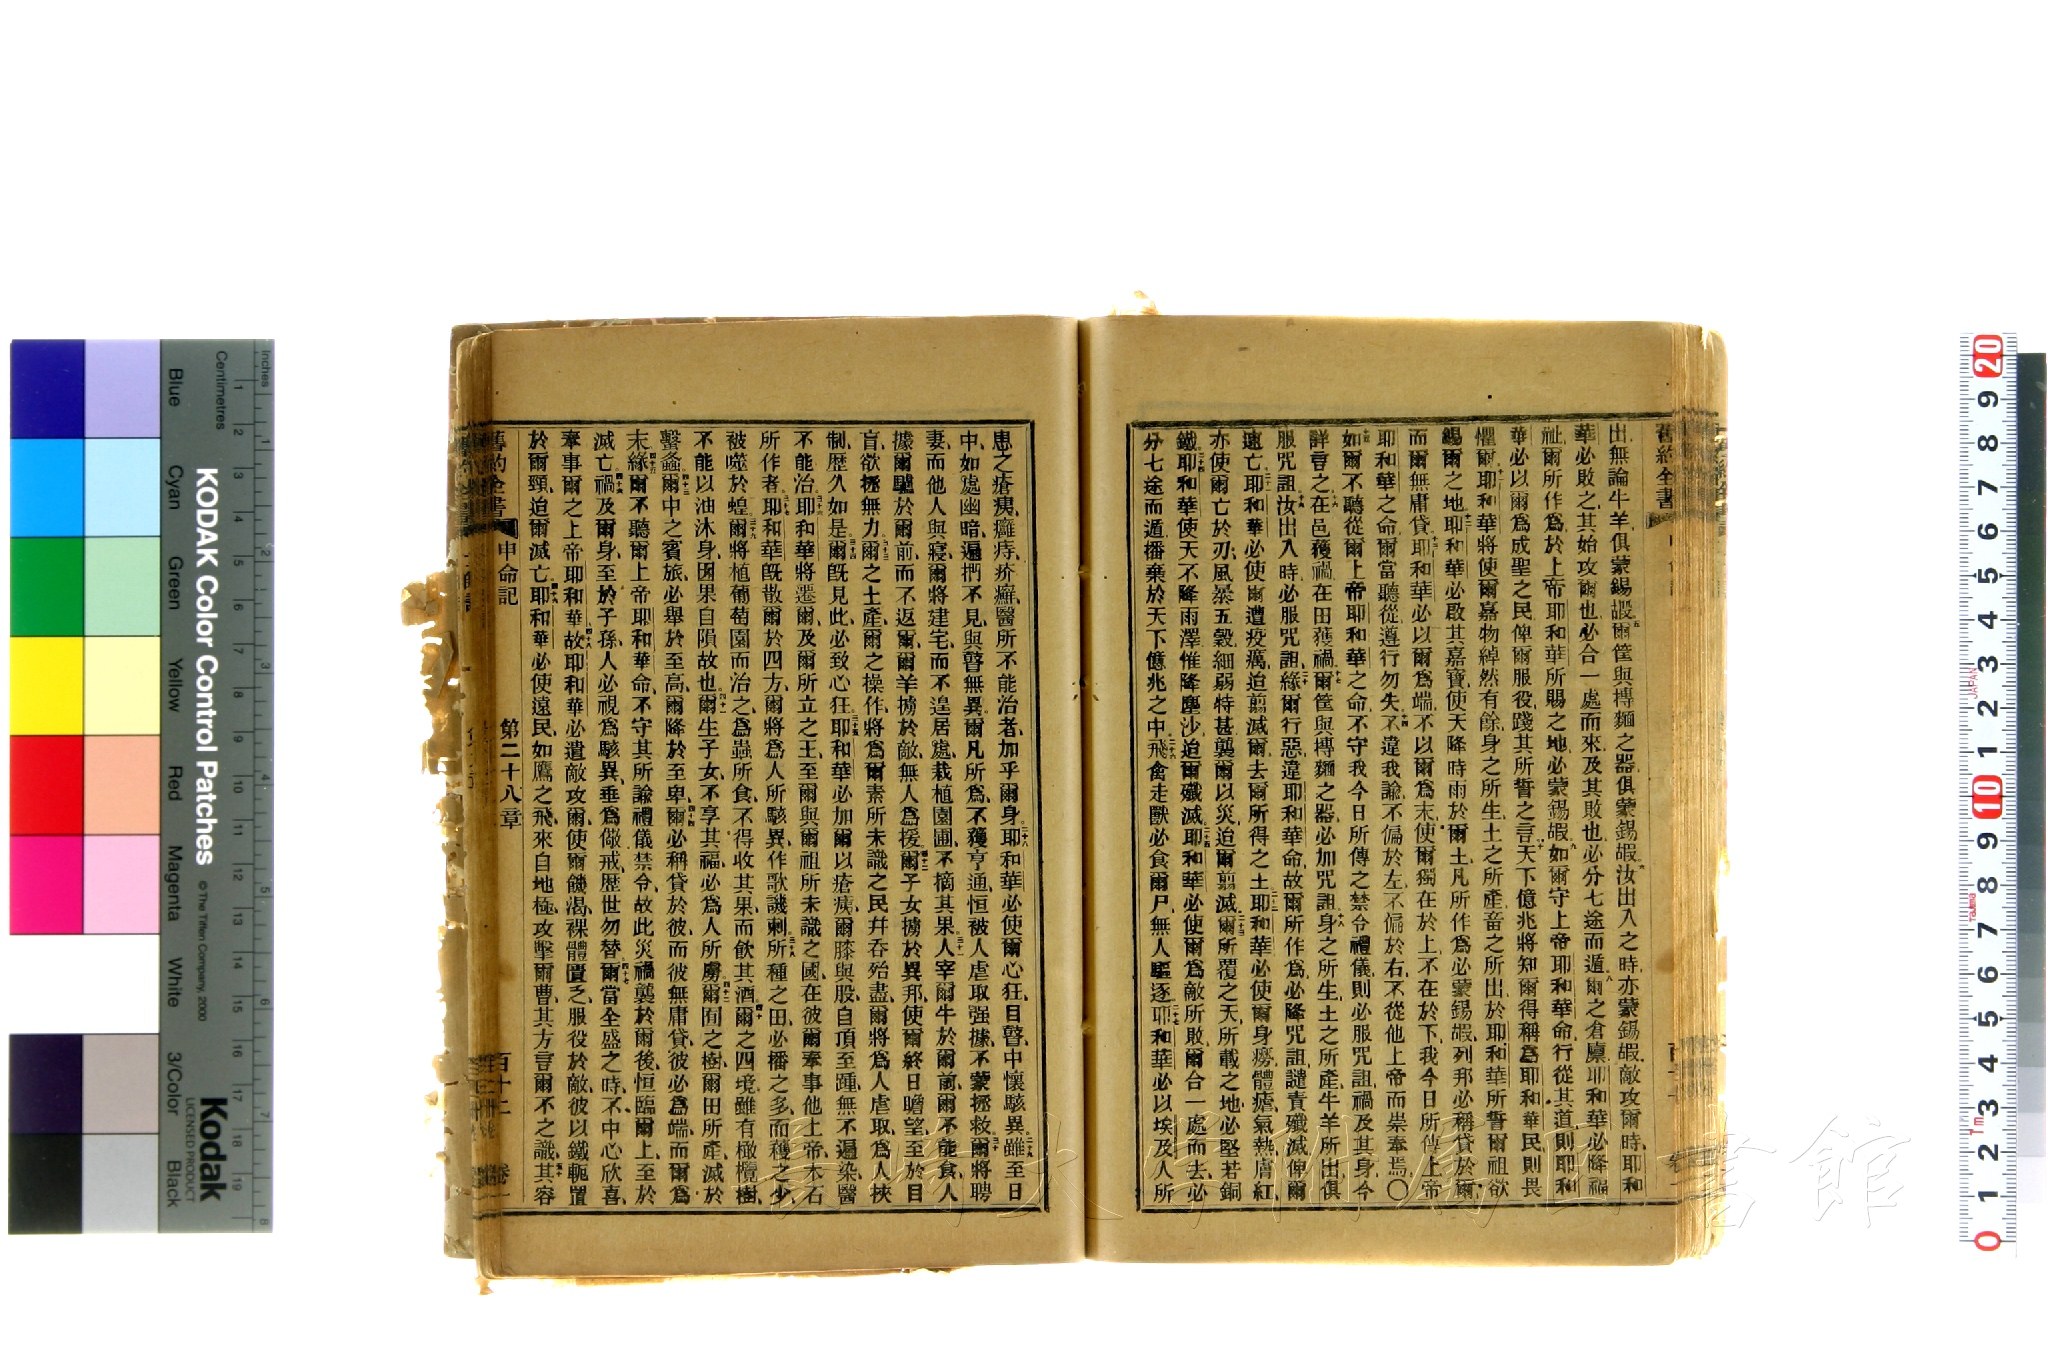 舊約全書
出無論牛羊俱蒙錫嘏爾筐與摶麵之器俱蒙錫嘏汝出入之時亦蒙錫嘏敵攻爾時耶和
華必敗之其始攻爾也必合一處而來及其敗也必分七途而遁爾之倉廩耶和華必降福
祉爾所作爲於上帝耶和華所賜之地必蒙錫嘏如爾守上帝耶和華命行從其道則耶和
華必以爾爲成聖之民俾爾服役踐其所誓之言天下億兆將知爾得稱爲耶和華民則畏
懼爾耶和華將使爾嘉物綽然有餘身之所生土之所產畜之所出於耶和華所誓爾祖欲
錫爾之地耶和華必啟其嘉寶使天降時雨於爾土凡所作爲必蒙錫嘏列邦必稱貸於爾
而爾無庸貸耶和華必以爾爲端不以爾爲末使爾獨在於上不在於下我今日所傳上帝
耶和華之命爾當聽從遵行勿失不違我諭不偏於左不偏於右不從他上帝而崇奉焉〇
如爾不聽從爾上帝耶和華之命不守我今日所傳之禁令禮儀則必服咒詛禍及其身今
詳言之在邑獲禍在田獲禍爾筐與摶麵之器必加咒詛身之所生土之所產牛羊所出俱
服咒詛汝出入時必服咒詛緣爾行惡違耶和華命故爾所作爲必降咒詛譴責殲滅俾爾
速亡耶和華必使爾遭疫癘迫翦滅爾去爾所得之土耶和華必使爾身癆體瘧氣熱膚紅
亦使爾亡於刃風暴五穀細弱特甚襲爾以災迫爾翦滅爾所覆之天所載之地必堅若銅
鐵耶和華使天不降雨澤惟降塵沙迫爾殲滅耶和華必使爾爲敵所敗爾合一處而去必
分七途而遁播棄於天下億兆之中飛禽走獸必食爾尸無人驅逐耶和華必以埃及人所
患之瘡痍癰痔疥癬醫所不能治者加乎爾身耶和華必使爾心狂目瞽中懷駭異雖至日
中如處幽暗遍捫不見與瞽無異爾凡所爲不獲亨通恒被人虐取強據不蒙拯救爾將聘
妻而他人與寢爾將建宅而不遑居處栽植園圃不摘其果人宰爾牛於爾前爾不能食人
據爾驢於爾前而不返爾爾羊擄於敵無人爲援爾子女擄於異邦使爾終日瞻望至於目
盲欲拯無力爾之土產爾之操作將爲爾素所未識之民幷吞殆盡爾將爲人虐取爲人挾
制歷久如是爾既見此必致心狂耶和華必加爾以瘡痍爾膝與股自頂至踵無不遍染醫
不能治耶和華將遷爾及爾所立之王至爾與爾祖所未識之國在彼爾奉事他上帝木石
所作者耶和華既散爾於四方爾將爲人所駭異作歌譏刺所種之田必播之多而穫之少
被噬於蝗爾將植葡萄園而治之爲蟲所食不得收其果而飲其酒爾之四境雖有橄欖樹
不能以油沐身因果自隕故也爾生子女不享其福必爲人所虜爾囿之樹爾田所產滅於
螽爾中之賓旅必舉於至高爾降於至卑爾必稱貸於彼而彼無庸貸彼必爲端而爾爲
末緣爾不聽爾上帝耶和華命不守其所諭禮儀禁令故此災禍襲於爾後恒臨爾上至於
滅亡禍及爾身至於子孫人必視爲駭異垂爲儆戒歷世勿替爾當全盛之時不中心欣喜
奉事爾之上帝耶和華故耶和華必遣敵攻爾使爾饑渴裸體匱乏服役於敵彼以鐵軛置
於爾頸迫爾滅亡耶和華必使遠民如鷹之飛來自地極攻擊爾曹其方言爾不之識其容
舊約全書 申命記 第二十八章 百十二 卷一
KODAK Color Control Patches
© The Tiffen Company, 2000
Kodak
LICENSED PRODUCT
Inches
Centimetres
Blue
Cyan
Green
Yellow
Red
Magenta
White
3/Color
Black
大學附屬圖書館